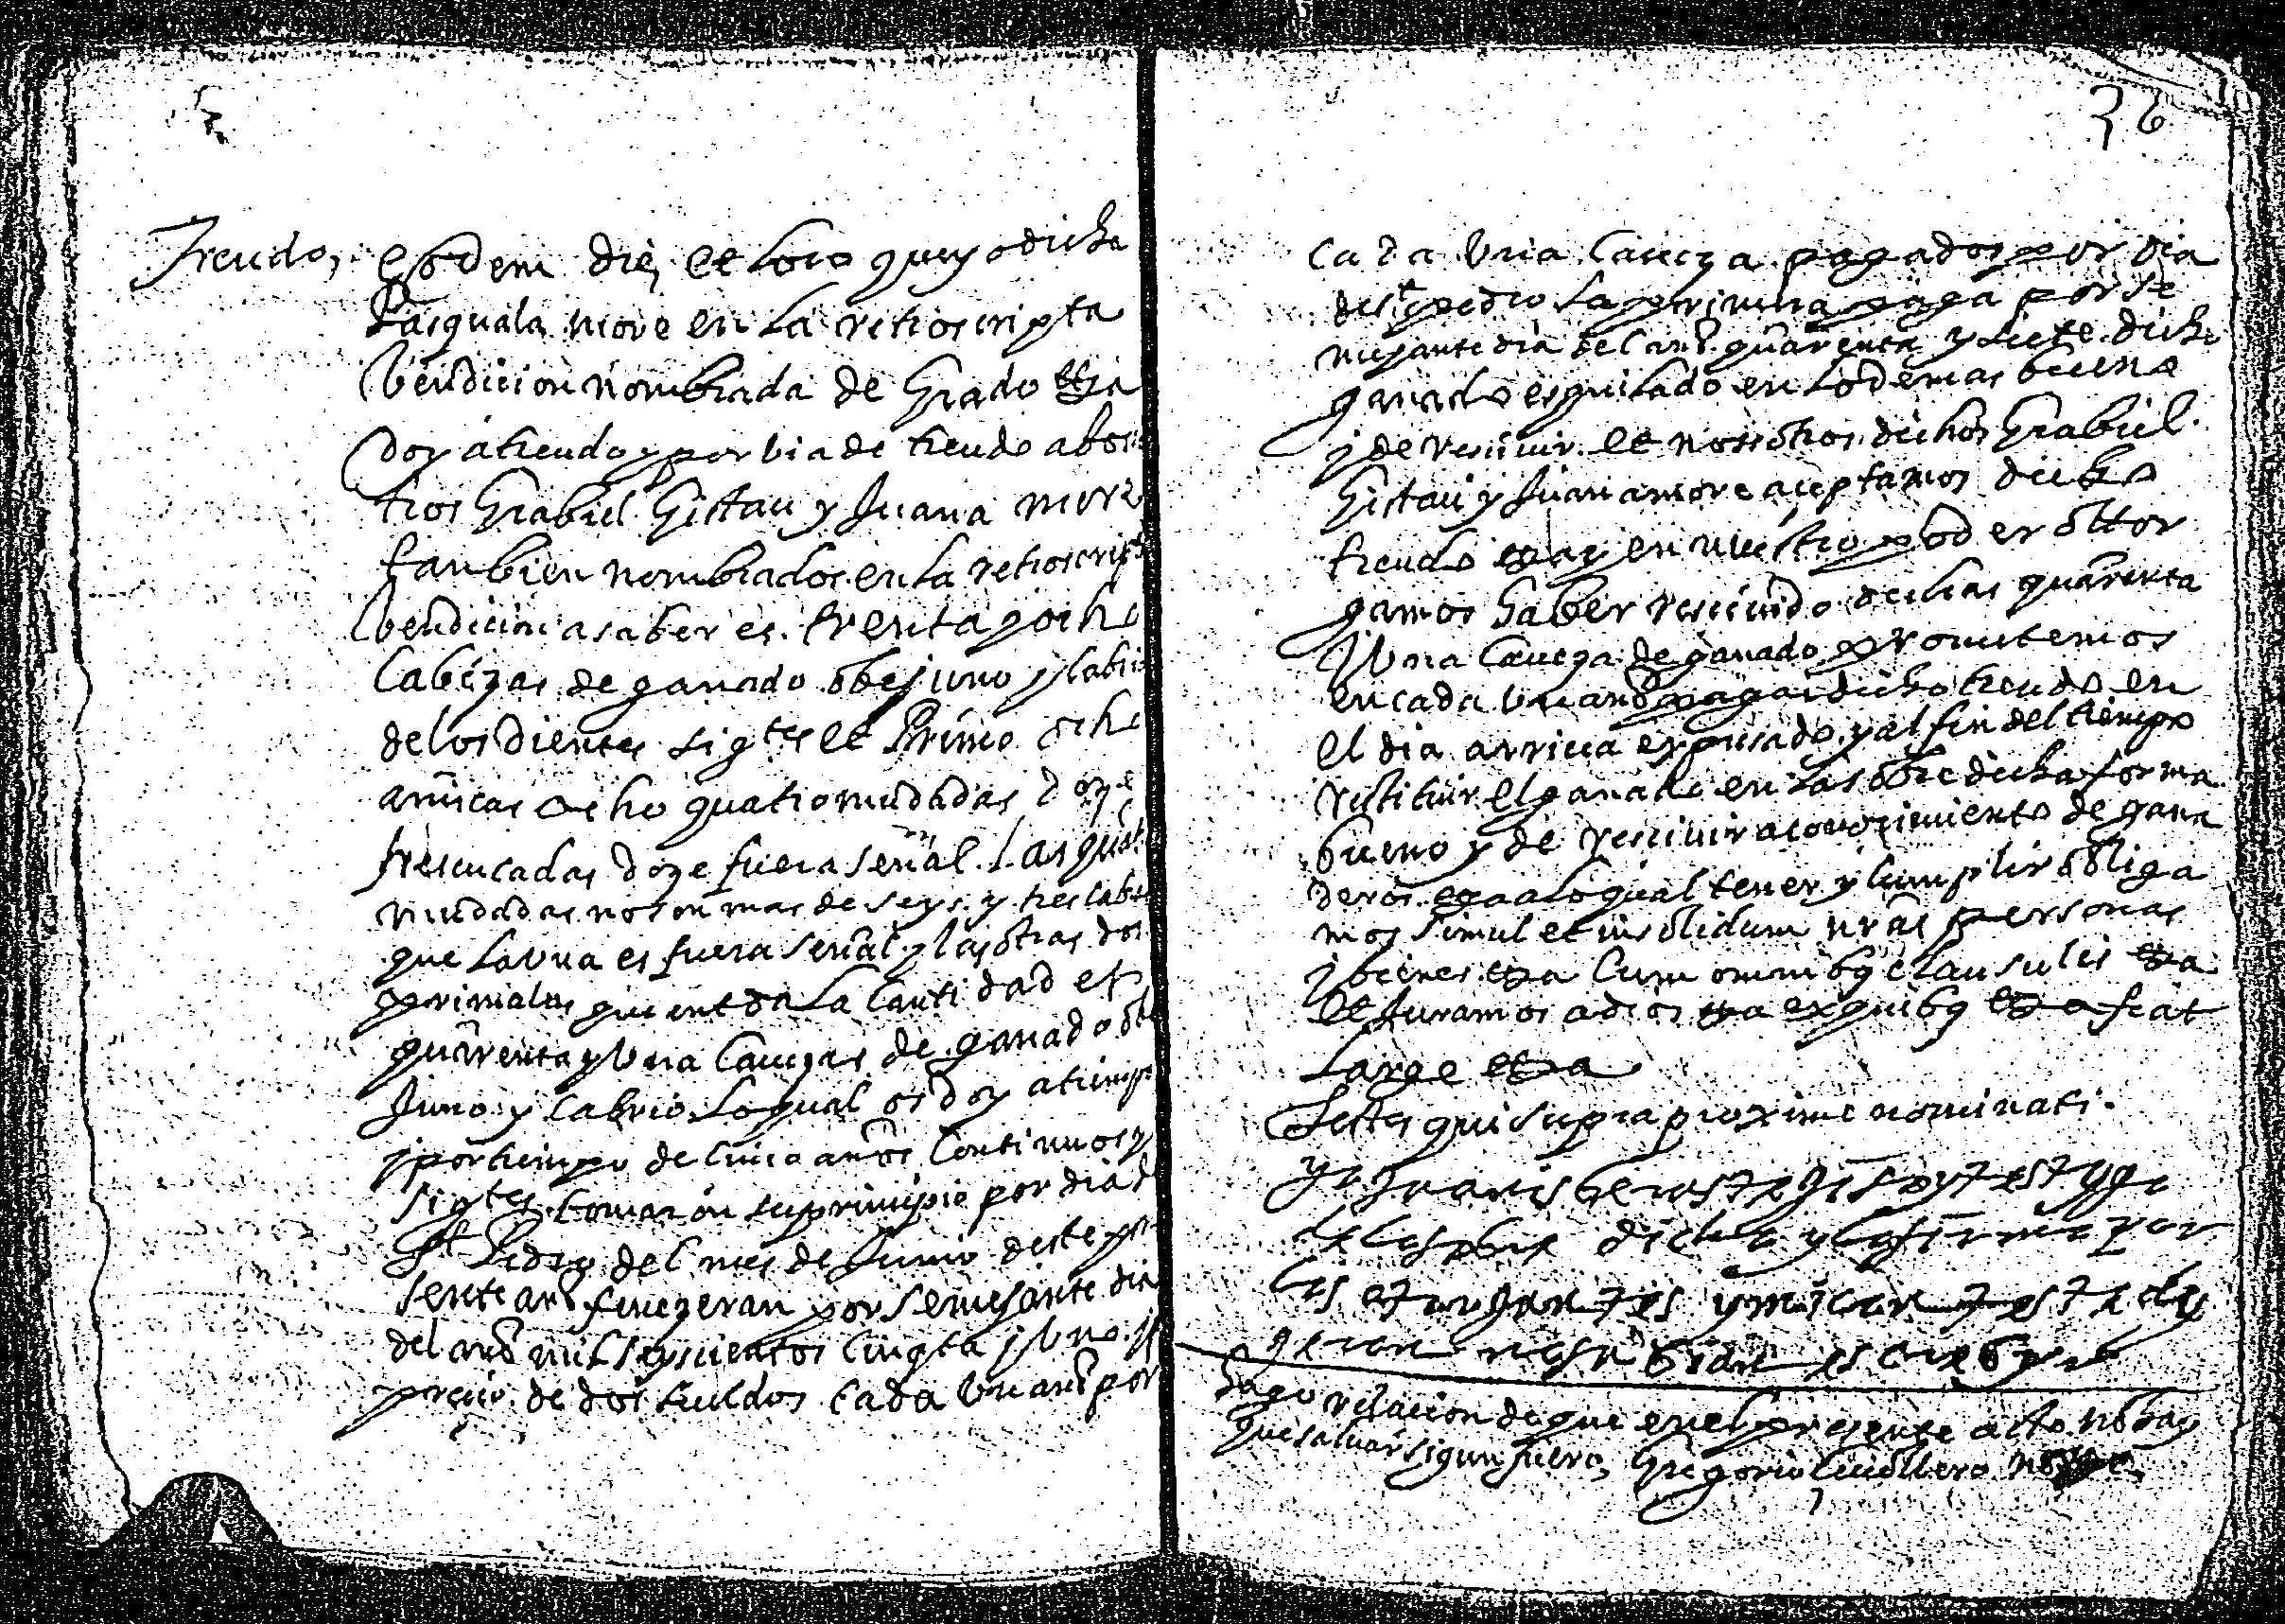 Treudo,
Eodem die, et loco que yo dicha
Pasquala more en la retroscripta
vendicion nombrada de Grado etta
doy a treudo y por via de treudo abos
tros Grabiel Gistau y Juana more
tanbien nombrados en la retroscripta
vendicion a saber es. trenta y ocho
cabezas de ganado obejuno y cabrio
de los dientes sigtes et Primo ocho
anicas ocho quatromudadas doze
trescucadas doze fuera señal. Las quatro
mudadas no son mas de seys y tres cabras
que la una es fuera señal y las otras dos
primalas que en tda la Cantidad es
quarenta y una Cauezas de ganado obe
juno y cabrio lo qual os doy a tiempo
y por tiempo de cinco años Continuos y
sigtes tomaron su principio por dia de
St Pedro del mes de Junio deste pre
sente año fenezeran por semejante dia
del año mil seyscientos cinqta y uno y
precio de dos sueldos cada un año por
36
cada una caueza pagados por dia
de st pedro la primera paga por se
mejante dia del año quarenta y siete dicho
ganado esquilado en lo demas bueno
y de reciuir et nosotros dichos Grabiel
Gistau y Juana more aceptamos dicho
treudo etta y en nuestro poder ottor
gamos haber reciuido dichas quarenta
y una Caueza de ganado prometemos
en cada un año pagar dicho treudo en
el dia arriua expresado y al fin del tiempo
restituir el ganado en la sobre dicha forma
bueno y de reciuir a conocimiento de gana
deros etta a lo qual tener y cumplir obliga
mos simul et in solidum nras personas
y bienes etta Cum omnibq clausulis etta
et Juramos a dios etta ex quibq etta fiat
Large etta
Testes qui supra proxime nominati.
testygo
de lo sobre dicho y lo firmo por
los otorgantes y mi con testes
que no sabian escrebyr
hago relacion de que en el presente acto no hay
que saluar sigun fuero, Gregorio